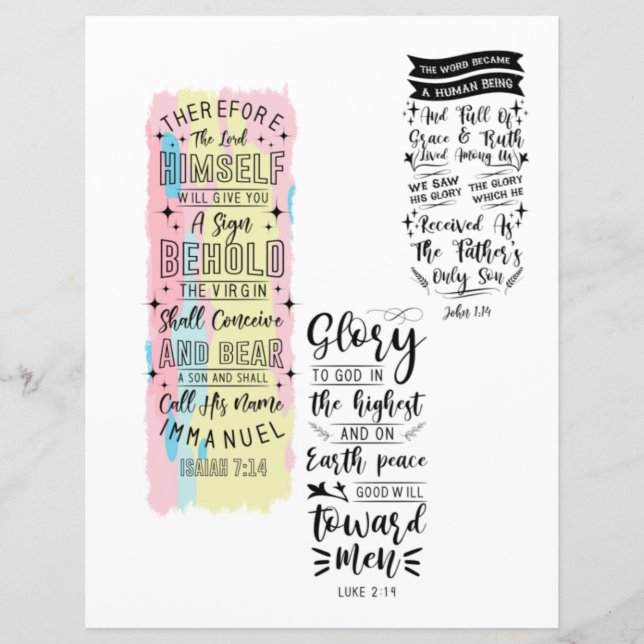 THEREFORE
The Lord
HIMSELF
WILL GIVE YOU
A Sign
BEHOLD
THE VIRGIN
Shall Conceive
AND BEAR
A SON AND SHALL
Call His Name
IMMANUEL
ISAIAH 7:14
THE WORD BECAME
A HUMAN BEING
And Full Of
Grace & Truth
Lived Among Us
WE SAW
HIS GLORY
THE GLORY
WHICH HE
Received As
The Father's
Only Son
John 1:14
Glory
TO GOD IN
the highest
AND ON
Earth peace
GOOD WILL
toward
men
LUKE 2:14